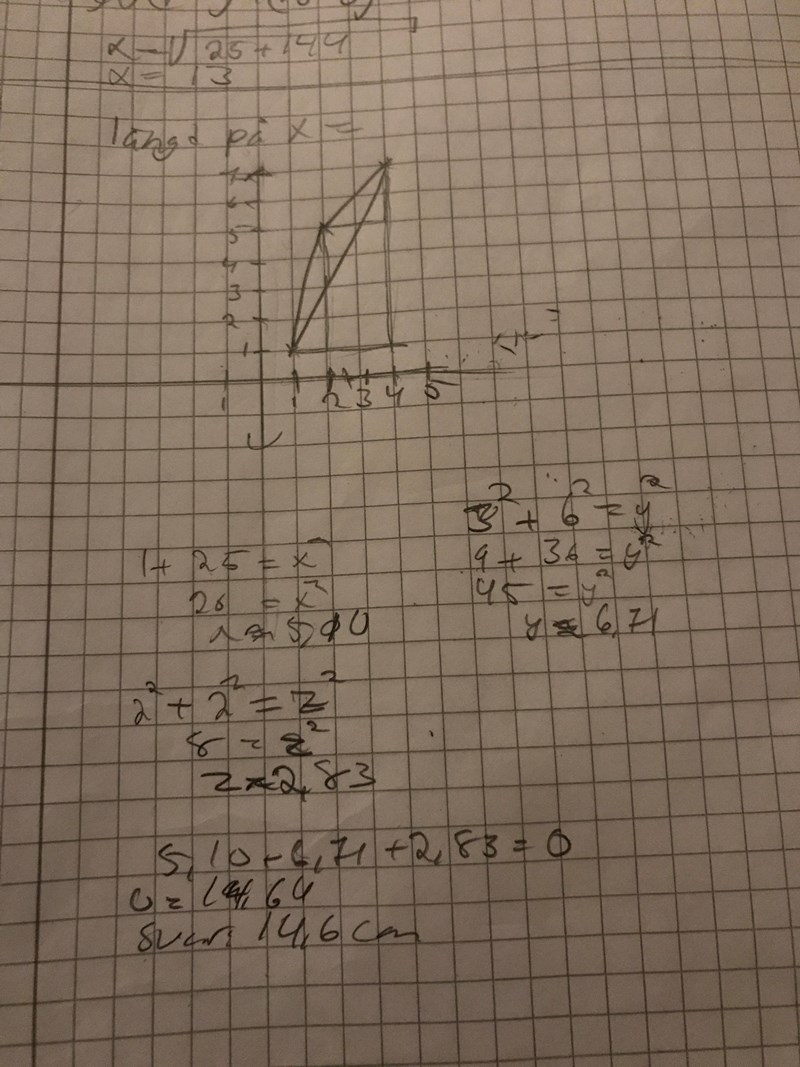 x = √25+144
x = 13
längd på x =
7
6
5
4
3
2
1
1 1 2 3 4 5
3² + 6² = y²
9 + 36 = y²
45 = y²
y ≈ 6,71
1 + 25 = x²
26 = x²
x ≈ 5,10
2² + 2² = z²
8 = z²
z ≈ 2,83
5,10 + 6,71 + 2,83 = O
O = 14,64
Svar: 14,6 cm